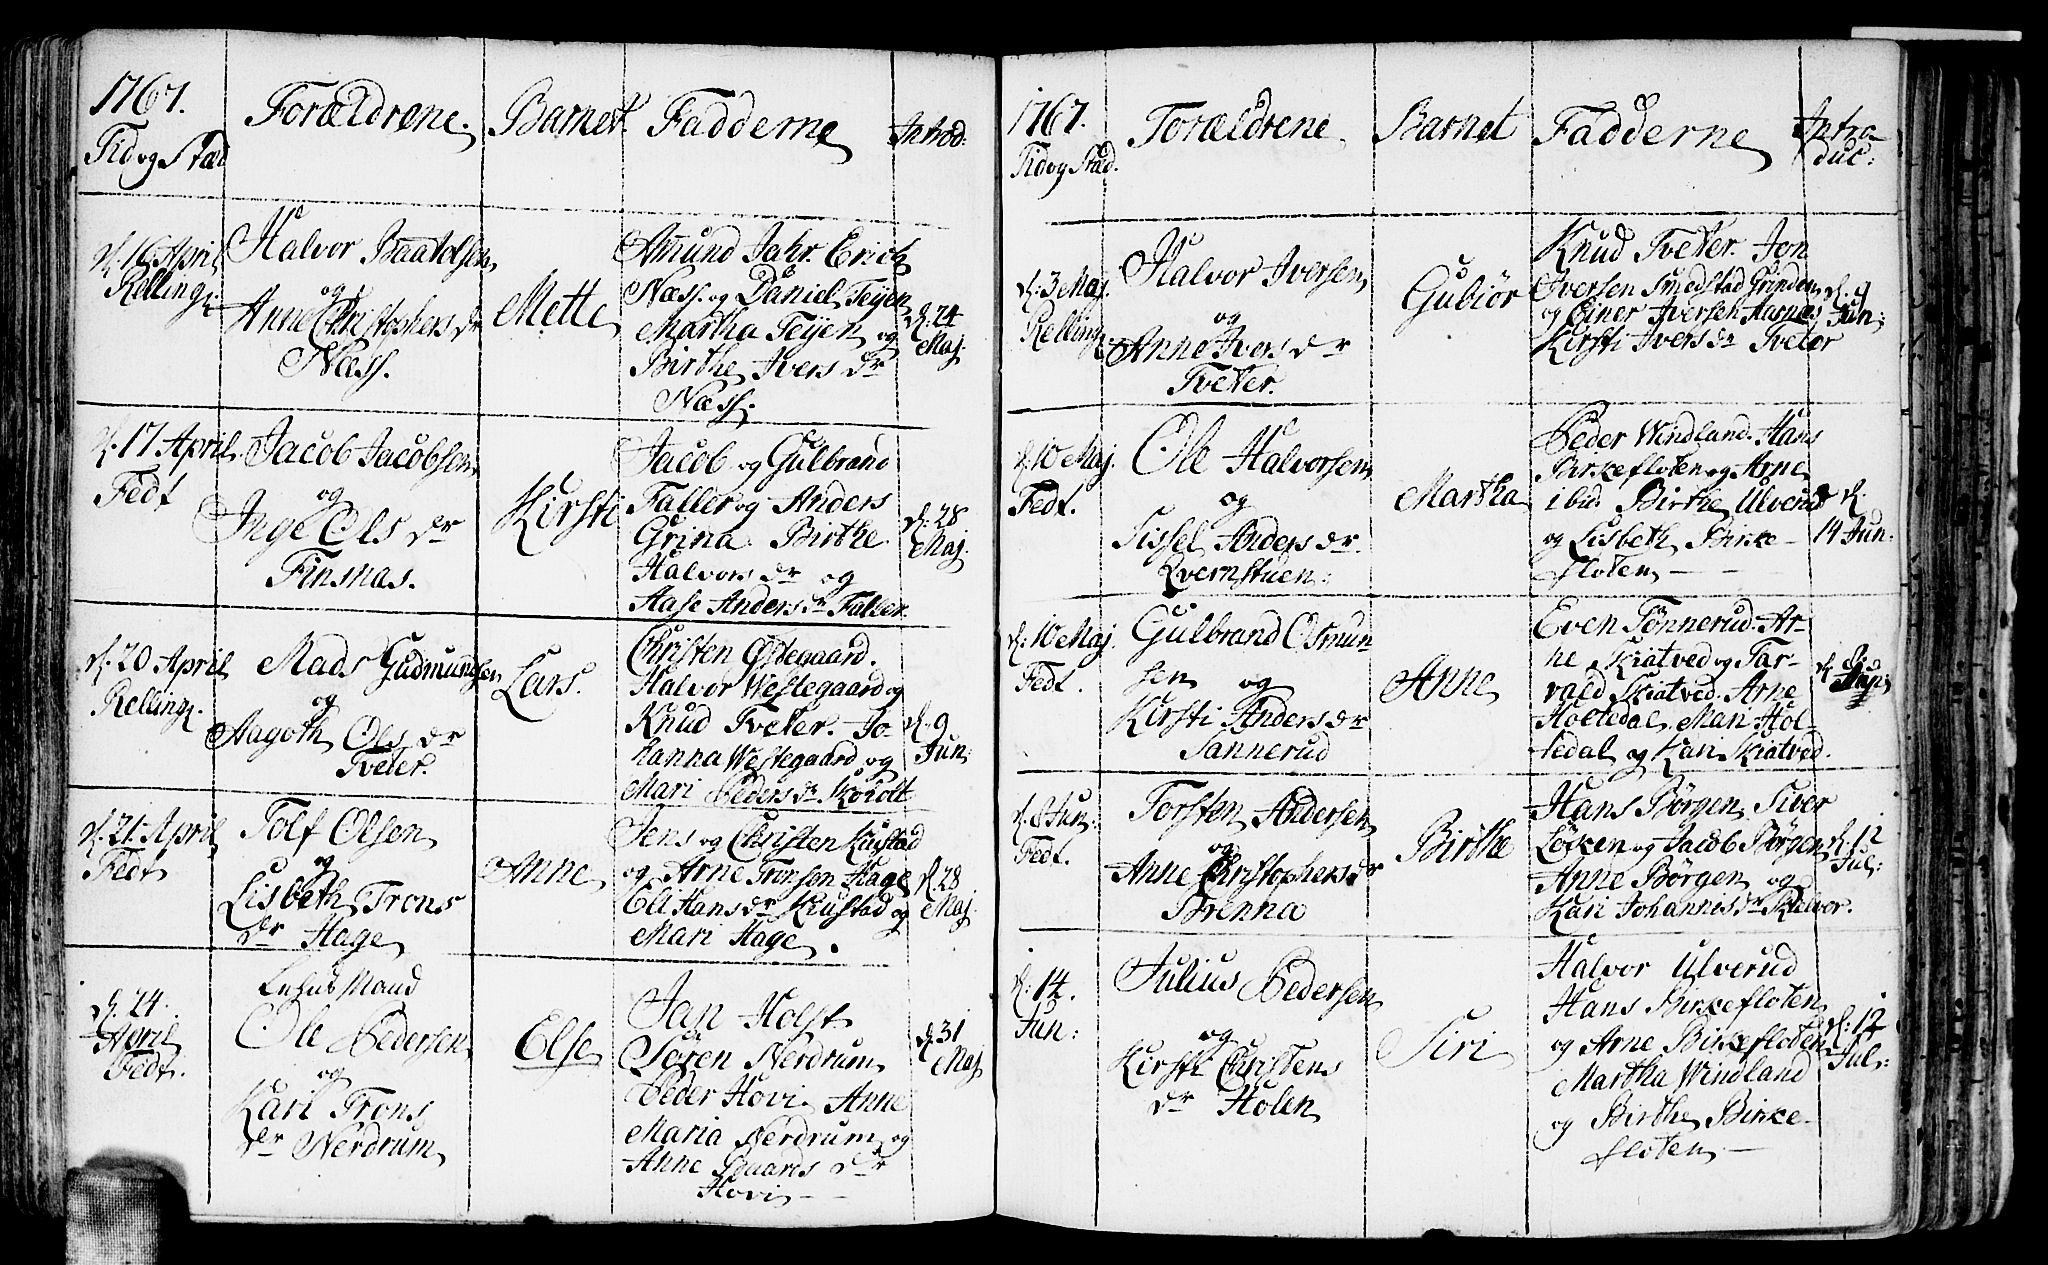 1767.
Tid og Stæd
Forældrene.
Barnet.
Fadderne
Introd:
d. 16 April
Relling:
Halvor Baarolsen
og
Anne Christophers dr
Næss.
Mette
Amund Jahr. Erich
Næss. og Daniel Teijen
Martha Teijen og
Birthe Ivers dr
Næss.
d. 24
Maj.
d. 17 April.
Fedt
Jacob Jacobsen
og
Inge Ols dr
Finsnas.
Kirsti
Jacob og Gulbrand
Faller og Anders
Grina. Birthe
Halvors dr og
Aase Anders dr Faller.
d. 28
Maj.
d. 20 April
Relling.
Mads Gudmundsen
og
Aagoth Ols dr
Tveter.
Lars.
Christen Ødegaard.
Halvor Westegaard og
Knud Tveter. Jo-
hanna Westegaard og
Mari Peders dr Kokott
d. 9
Jun:
d. 21. April
Fedt
Tolf Olsen
og
Lisbeth Trons
dr Hage
Anne
Jens og Christen Kiustad
og Arne Tronsen Hage
Eli Hans dr Kiustad og
Mari Hage.
d. 28
Maj.
d. 24.
April
Fedt.
Mand
Ole Pedersen
og
Kari Trons
dr Nerdrum
Else
Jan Holst
Søren Nerdrum
Peder Hovi. Anne
Maria Nerdrum og
Anne Eduards dr
Hovi
d. 31
Maj
1767.
Tid og Stæd.
Forældrene
Barnet
Fadderne
Intro
duc:
d. 3 Maj.
Relling.
Halvor Iversen
og
Anne Ivers dr
Tveter.
Gubiør
Knud Tveter. Jon
Iversen Smedstad Grinden
og Einer Iversen Aarnæs
Kirsti Ivers dr Tveter
d. 9
Jun:
d. 10 Maj.
Fedt.
Ole Halvorsen
og
Sissel Anders dr
Kvernstuen:
Martha
Peder Windland. Hans
Birkefloten og Arne
ibid. Birthe Ulverud
og Lisbeth Birke-
floten
d.
14 Jun:
d: 10 Maj.
Fedt.
Gulbrand Osmun
sen og
Kirsti Anders dr
Sannerud
Anne
Even Tønnerud. Ar-
ne Skiatved og Tar-
vald Skiatved. Arne
Holtedal. Mari Hol-
tedal og Kari Skiatved.
d.
d. 8 Jun:
Fedt.
Torsten Andersen
og
Anne Christophers dr
Brenna
Birthe
Hans Børgen Siver
Løken og Jacob Børgen
Anne Børgen og
Kari Johannes dr Kielvor.
d. 12
Jul:
d. 14.
Jun:
Julius Pedersen
og
Kirsti Christens
dr Holen
Siri
Halvor Ulverud
Hans Birkefloten
og Arne Birkefloten
Martha Windland
og Birthe Birke-
floten
d: 12
Jul: